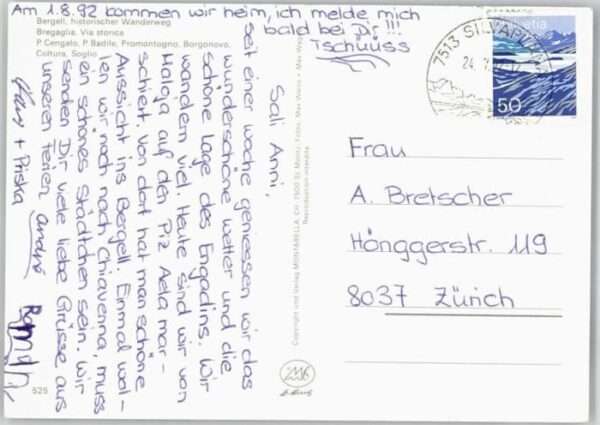 Am 1.8.92 kommen wir heim, ich melde mich
bald bei Dir!!!
Tschüüss
Bergell, historischer Wanderweg
Bregaglia, Via storica
P. Cengalo, P. Badile, Promontogno, Borgonovo,
Coltura, Soglio
Sali Anni,
seit einer woche geniessen wir das
wunderschöne wetter und die
schöne lage des Engadins. Wir
wandern viel. Heute sind wir von
Maloja auf den Piz Aela mar-
schiert, von dort hat man schöne
Aussicht ins Bergell. Einmal wol-
len wir noch nach Chiavenna, muss
ein schönes Städtchen sein. Wir
senden Dir viele liebe Grüsse aus
unseren Ferien André
+ Priska
525
Copyright und Verlag MONTABELLA, CH-7500 St. Moritz
Reproduction interdite
7513 SILVAPLANA
24.
helvetia
50
Frau
A. Bretscher
Hönggerstr. 119
8037 Zürich